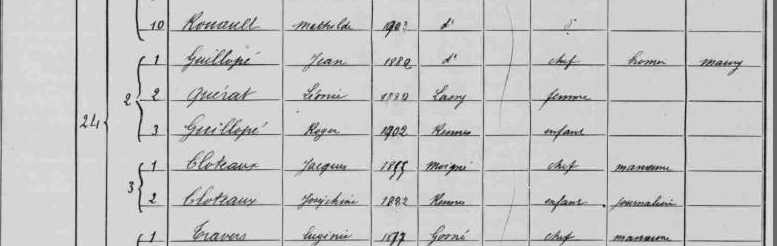 10 Rouault Mathilde 1903 d° d°
24 2 1 Guillopé Jean 1880 d° chef
2 Guérat Léonie 1880 Lassy femme
3 Guillopé Roger 1902 Rennes enfant
3 1 Cloteaux Jacques 1855 Moigné chef manœuvre
2 Cloteaux Joséphine 1882 Rennes enfant journalière
1 Travers Eugénie 1877 Gosné chef manœuvre